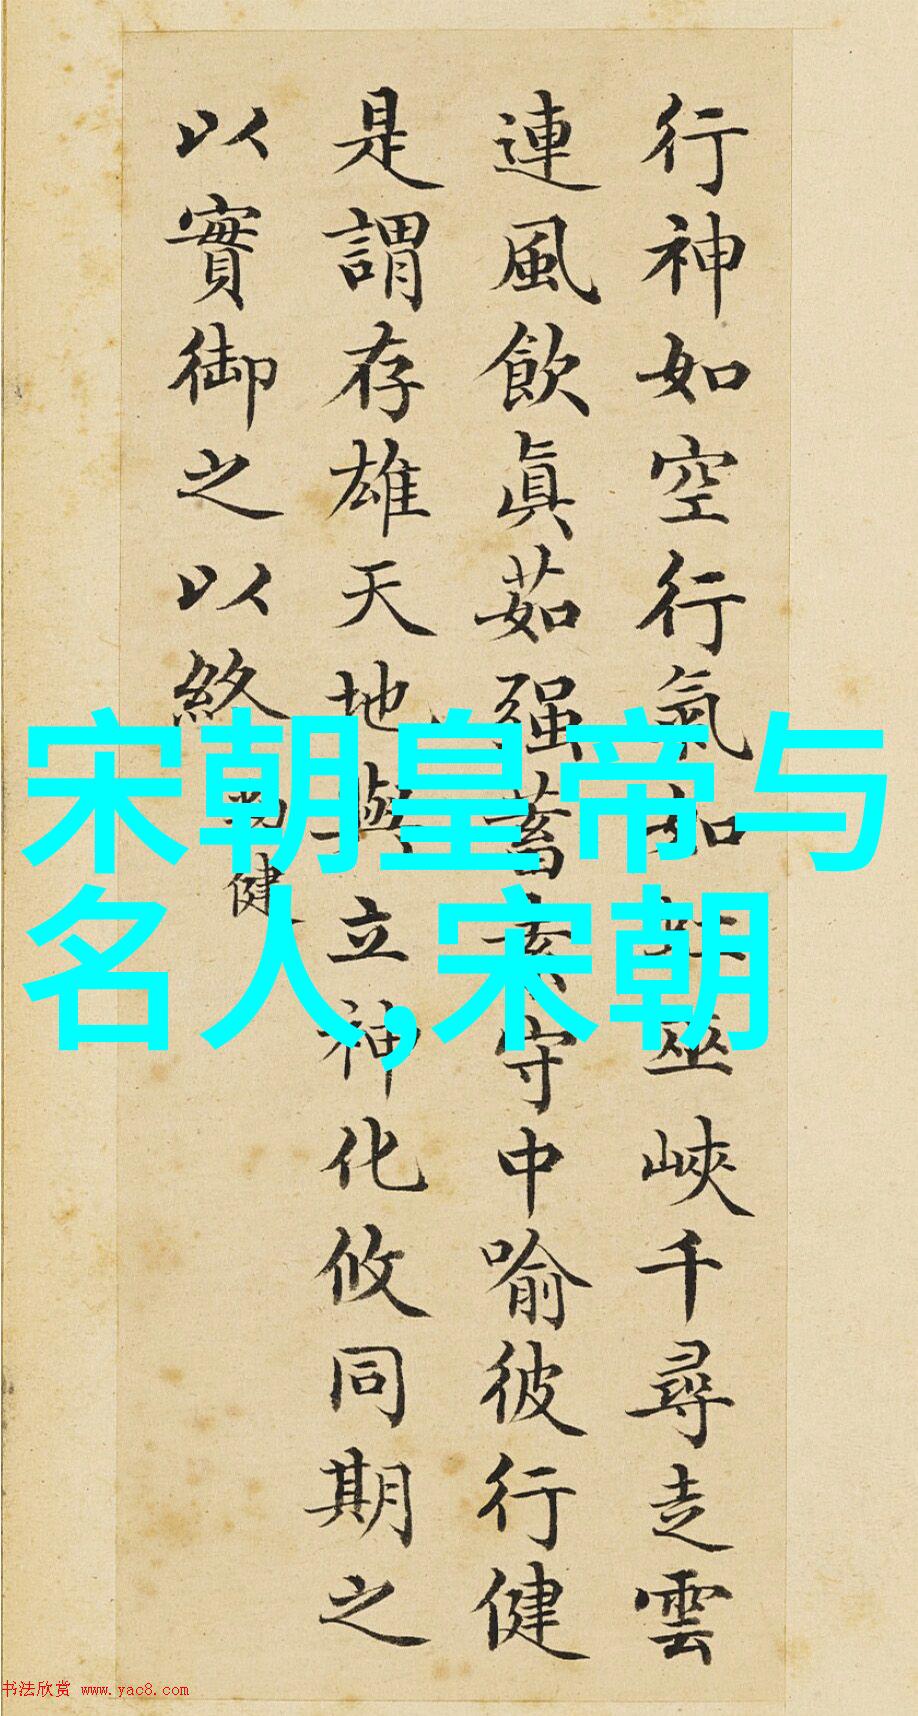 行神如空行氣如虹巫峽千尋走雲
連風飲眞茹强蓄素守中喻彼行健
是謂存雄天地與立神化攸同期之
以實御之以終
勁健
宋朝皇帝与
名人,宋朝
书法欣赏 www.yac8.com